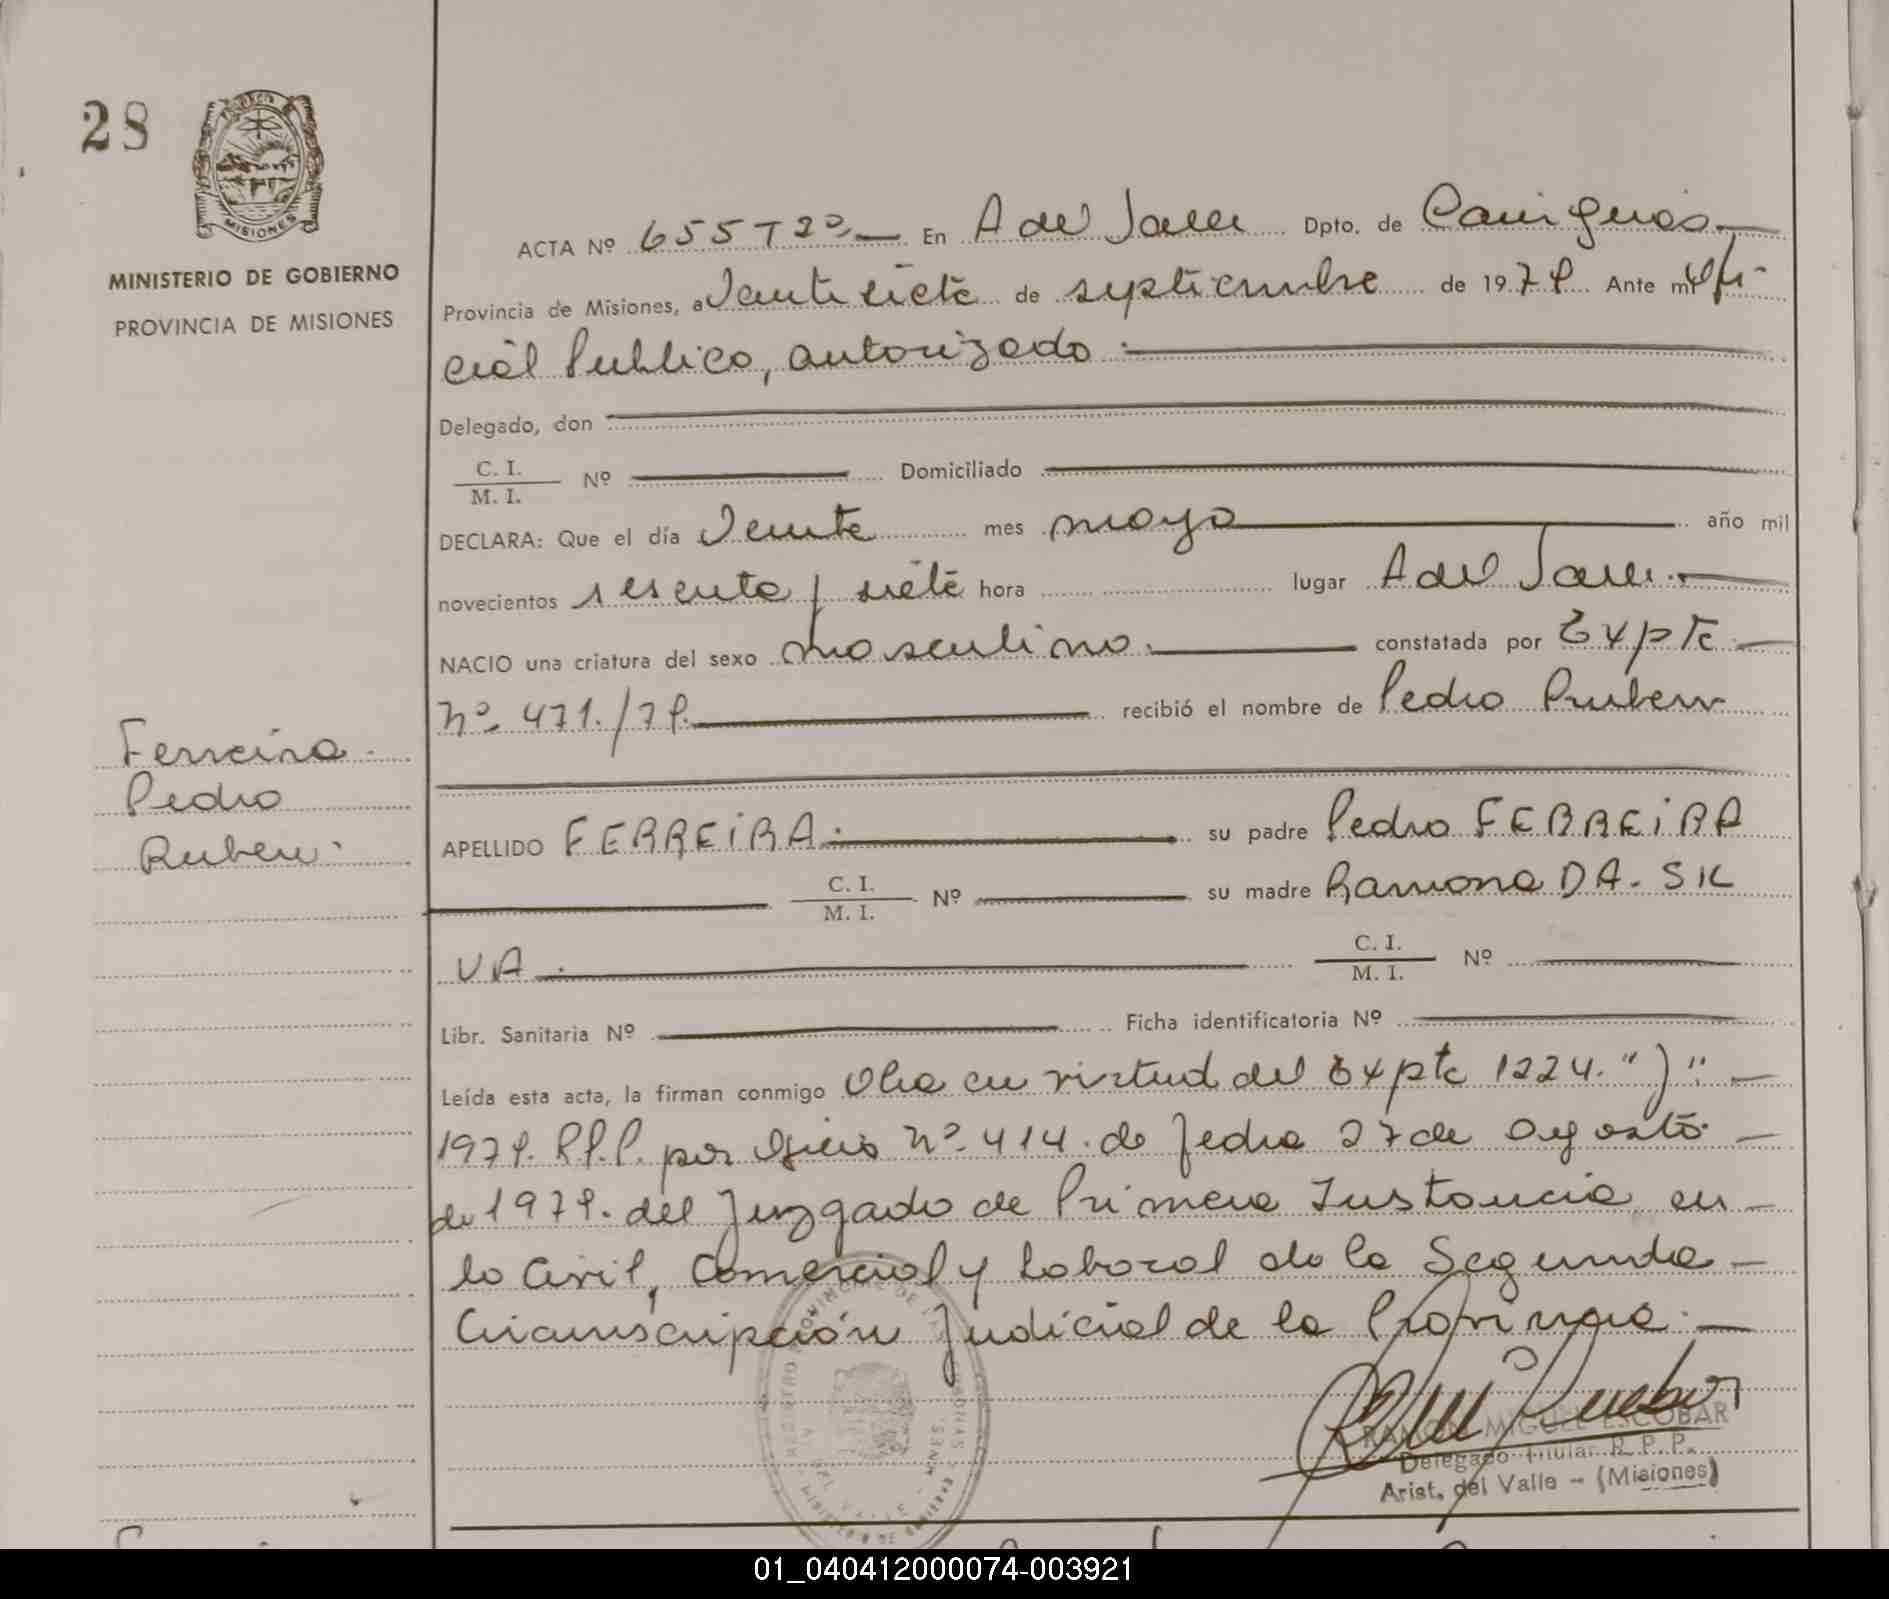 28
MISIONES
MINISTERIO DE GOBIERNO
PROVINCIA DE MISIONES
ACTA Nº 655 T 2º En A del Valle Dpto. de Cainguás
Provincia de Misiones, a Veinti siete de septiembre de 1979 Ante mí Ofi-
cial Publico, autorizado
Delegado, don
C. I. / M. I. Nº Domiciliado
DECLARA: Que el día Veinte mes mayo año mil
novecientos sesenta y siete hora lugar A del Valle
NACIO una criatura del sexo masculino constatada por Expte
Nº 471/79 recibió el nombre de Pedro Ruben
Ferreira
Pedro
Ruben
APELLIDO FERREIRA su padre Pedro FERREIRA
C. I. / M. I. Nº su madre Ramona DA. SIL
VA C. I. / M. I. Nº
Libr. Sanitaria Nº Ficha identificatoria Nº
Leída esta acta, la firman conmigo en virtud del Expte 1224. "J"
1979. R.P.P. por Oficio Nº 414 de fecha 27 de Agosto
de 1979. del Juzgado de Primera Instancia en
lo Civil, Comercial y Laboral de la Segunda
Circunscripción Judicial de la Provincia.
RAMON MIGUEL ESCOBAR
Delegado Titular R. P. P.
Arist. del Valle - (Misiones)
01_040412000074-003921